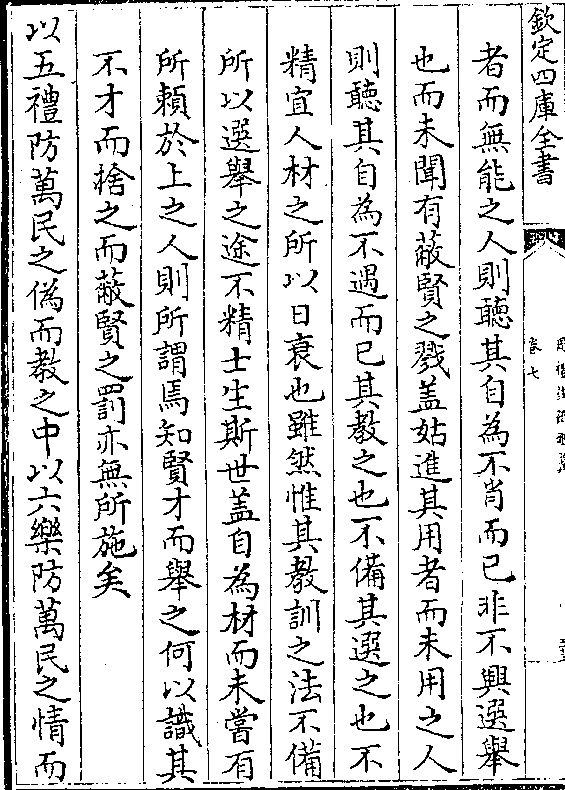 欽定四庫全書
卷七
者而無能之人則聽其自為不肖而已非不興選舉
也而未聞有蔽賢之戮盖姑進其用者而未用之人
則聽其自為不遇而已其教之也不備其選之也不
精宜人材之所以日衰也雖然惟其教訓之法不備
所以選舉之途不精士生斯世盖自為材而未嘗有
所頼於上之人則所謂焉知賢才而舉之何以識其
不才而捨之而蔽賢之罰亦無所施矣
以五禮防萬民之偽而教之中以六樂防萬民之情而